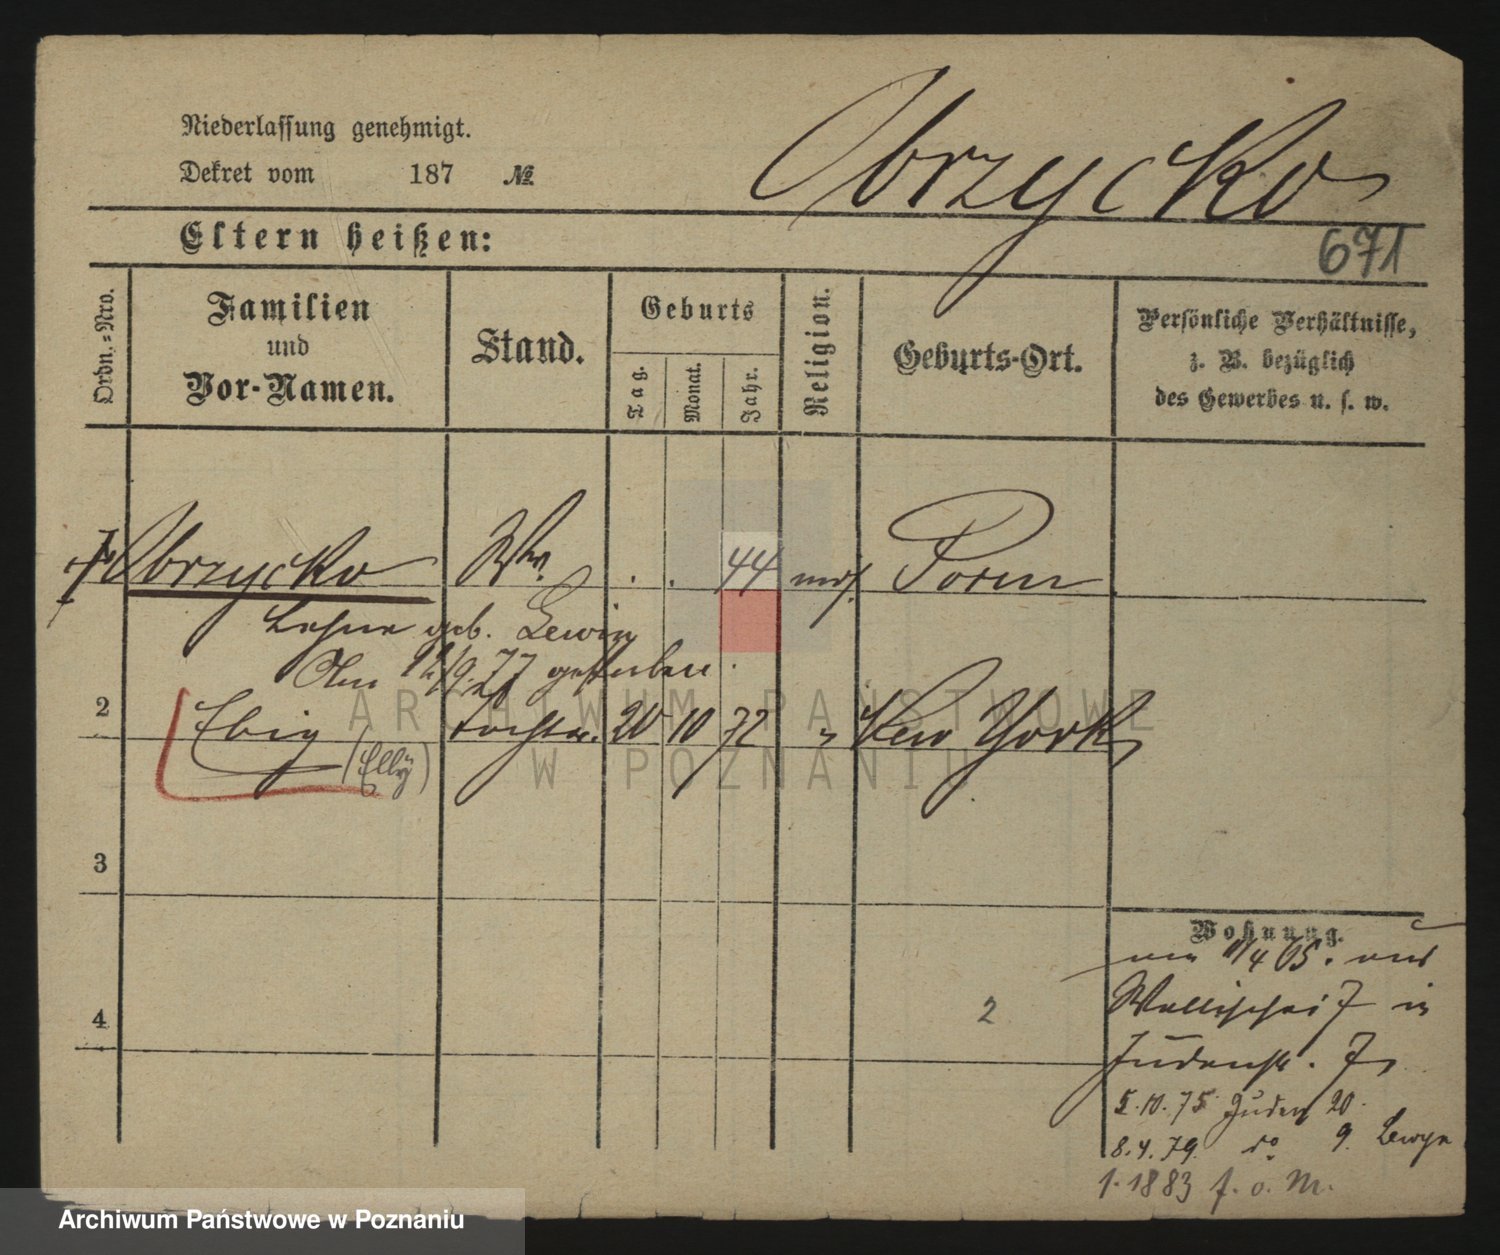 Niederlassung genehmigt.
Dekret vom 187 №
Obrzycko
671
Eltern heißen:
Ordn.-Nro.
Familien
und
Vor-Namen.
Stand.
Geburts
Tag.
Monat.
Jahr.
Religion.
Geburts-Ort.
Persönliche Verhältnisse,
z. B. bezüglich
des Gewerbes u. s. w.
Obrzycko Ww. . . 44 mos. Posen
geb. Lewin
Am /9.77 gestorben.
2 Tochter. 20 10 72 " New York
(Elly)
3
4
2
Wohnung.
/4 65. aus
Wallischei 7 in
Judenstr. 7
5.10.75 Juden 20.
8.4.79. do 9. Lewyn
1.1883 f. o. M.
ARCHIWUM PAŃSTWOWE
W POZNANIU
Archiwum Państwowe w Poznaniu